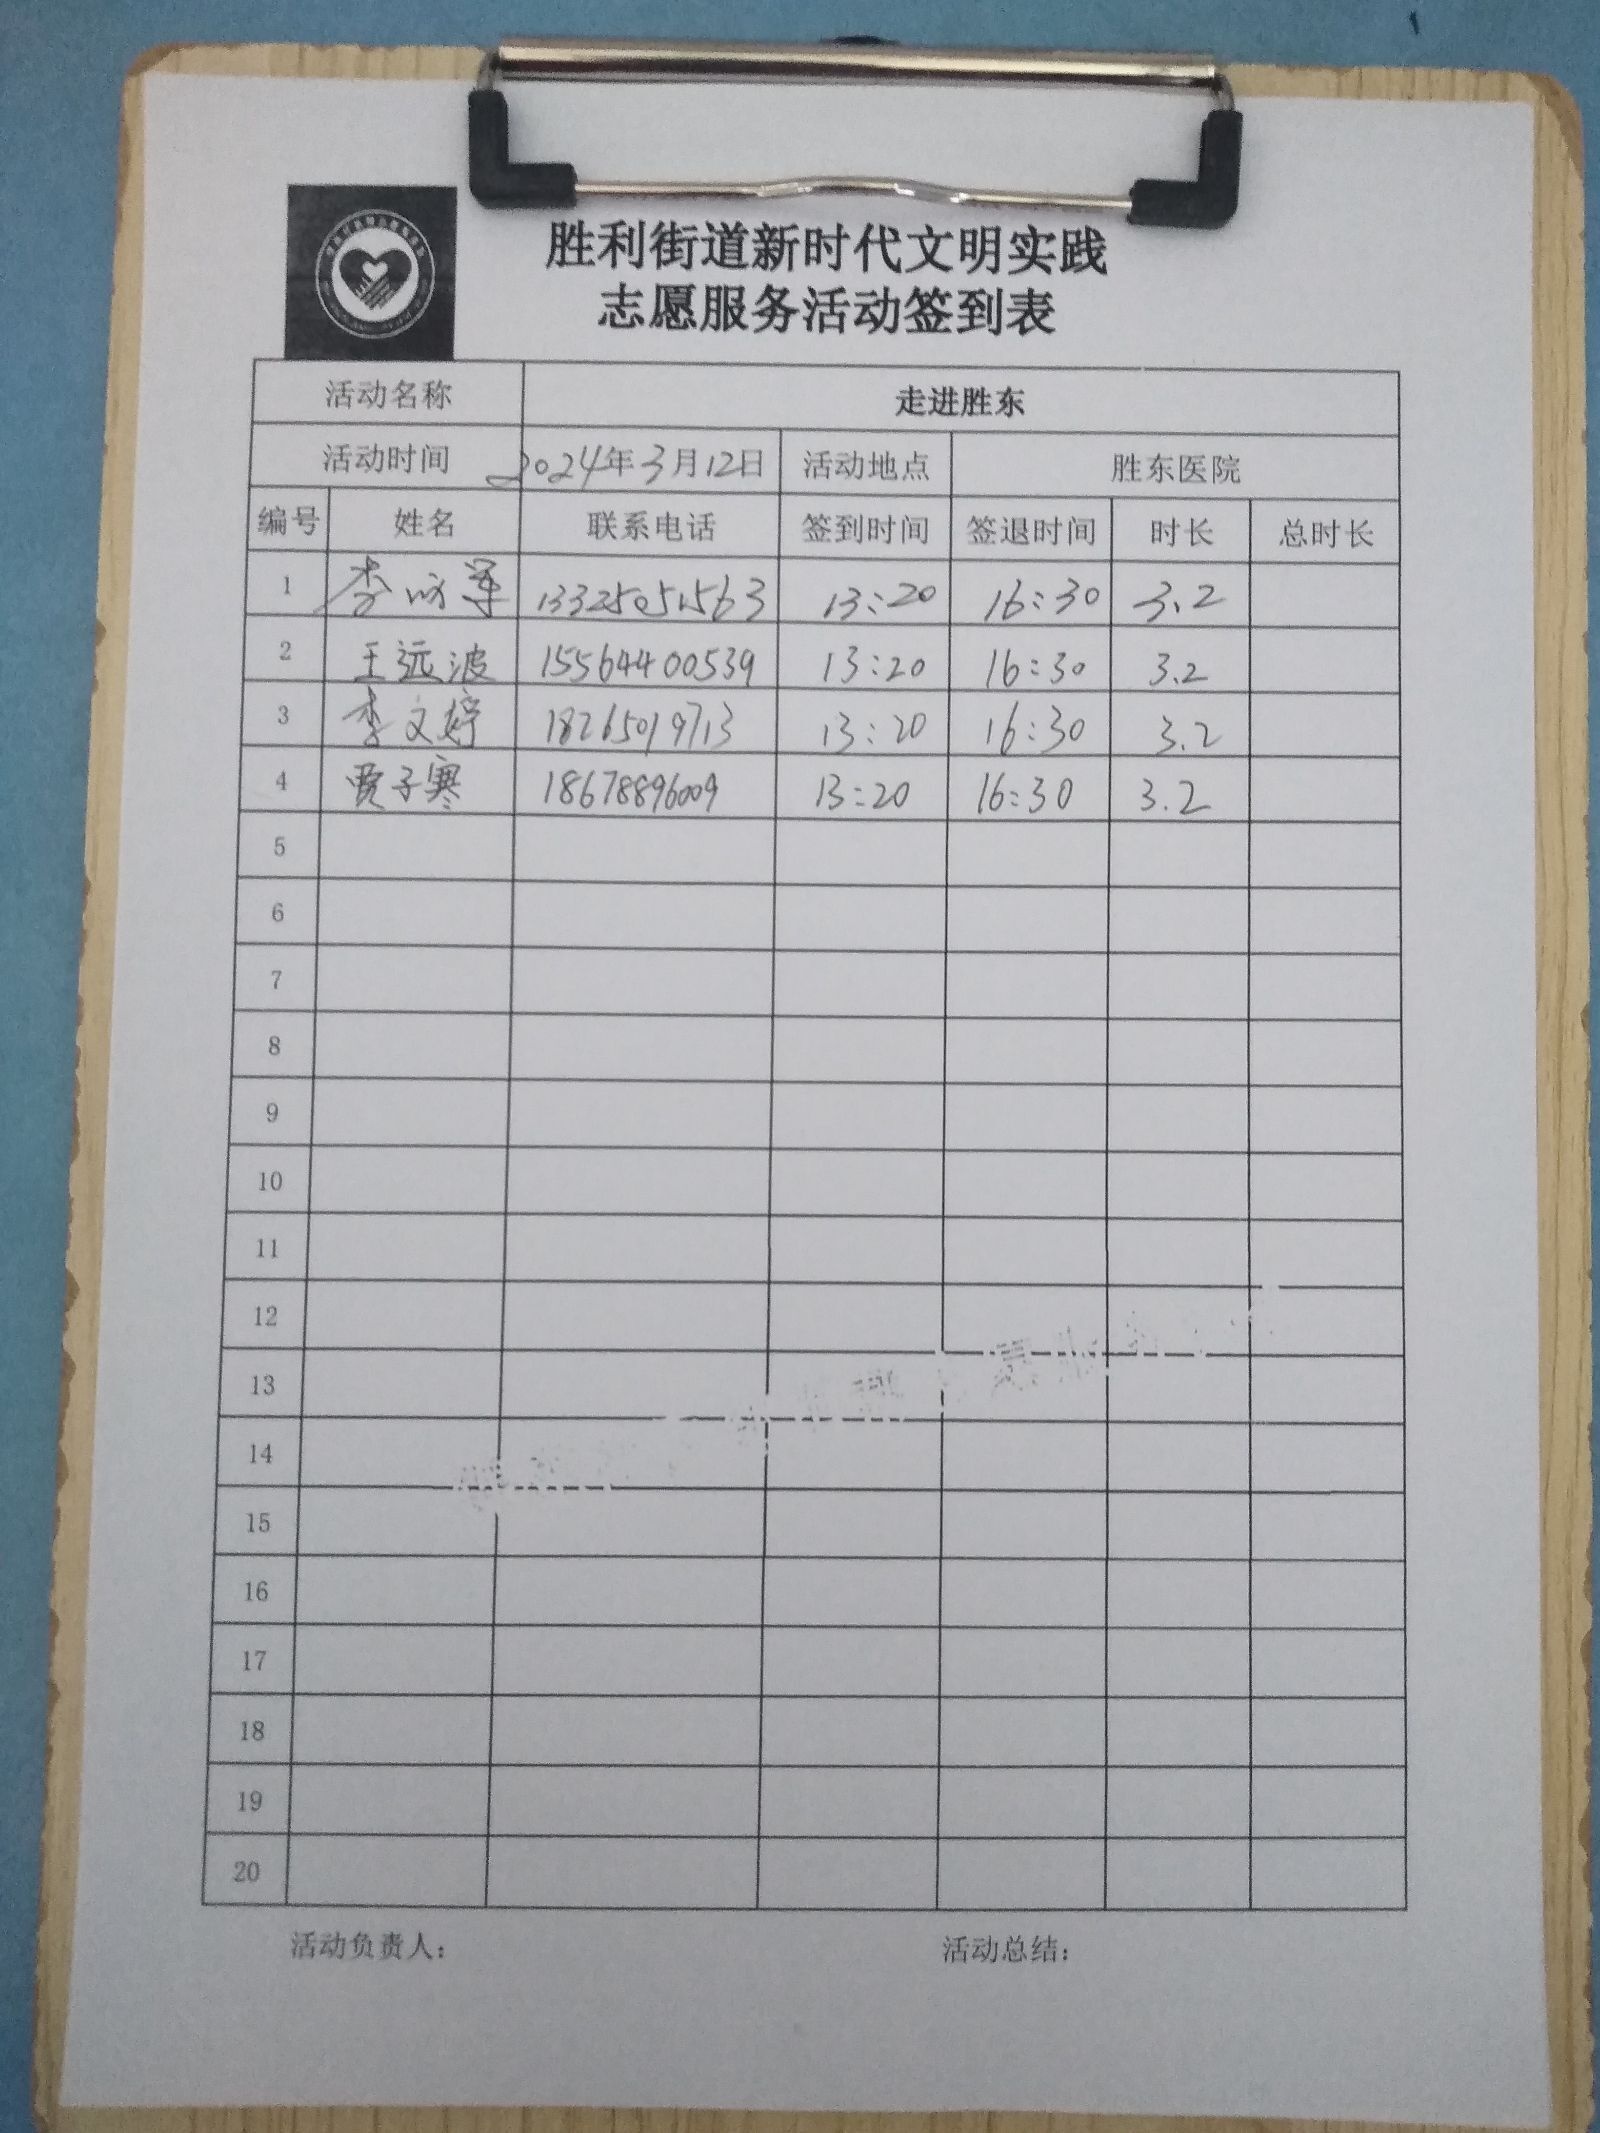 胜利街道新时代文明实践
志愿服务活动签到表
活动名称 走进胜东
活动时间 2024年3月12日 活动地点 胜东医院
编号 姓名 联系电话 签到时间 签退时间 时长 总时长
1 李咏军 13325051563 13:20 16:30 3.2
2 王远波 15564400539 13:20 16:30 3.2
3 李文婷 18265019713 13:20 16:30 3.2
4 贾子寒 18678896009 13:20 16:30 3.2
5
6
7
8
9
10
11
12
13
14
15
16
17
18
19
20
活动负责人： 活动总结：